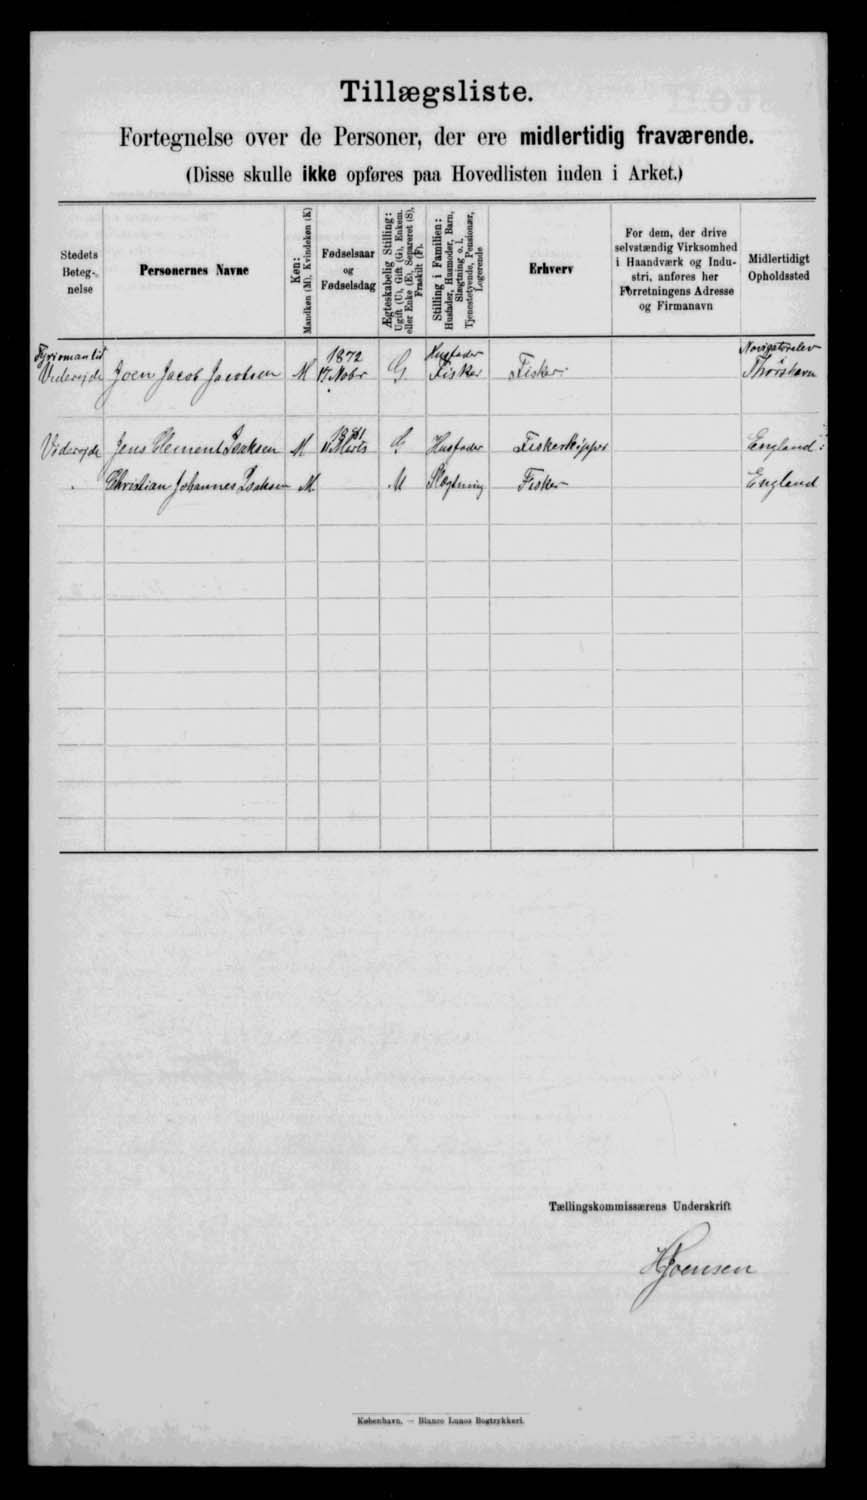 Tillægsliste.
Fortegnelse over de Personer, der ere midlertidig fraværende.
(Disse skulle ikke opføres paa Hovedlisten inden i Arket.)
Stedets Beteg-, nelse
Personernes Navne
Køn: Mandkøn (M), Kvindekøn (K)
Fødselsaar og Fødselsdag
Ægteskabelig Stilling: Ugift (U), Gift (G), Enkem. eller Enke (E), Separeret (S), Fraskilt (F).
Stilling i Familien: Husfader, Husmoder, Barn, Slægtning o. l. Tjenestetyende, Pensionær, Logerende
Erhverv
For dem, der drive selvstændig Virksomhed i Haandværk og Indu- stri, anføres her Forretningens Adresse og Firmanavn
Midlertidigt Opholdssted
1872 Husfader
Joen Jacob Jacobsen M 17 Nobr G Fisker Fisker Thorshavn
Viderejde Jens Clement Isaksen M Marts G Husfader Fiskerskipper England
Christian Johannes Isaksen M. M Slægtning Fisker England
Tællingskommissærens Underskrift
HJoensen
København. — Bianco Lunos Bogtrykkeri.